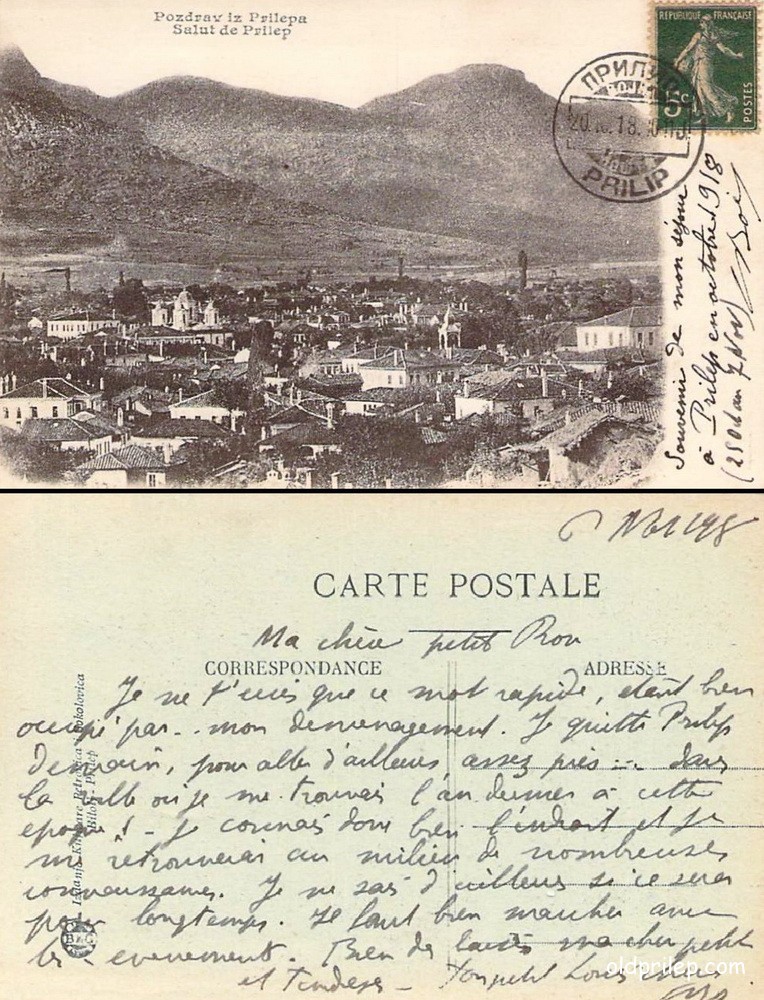 Pozdrav iz Prilepa
Salut de Prilep
REPUBLIQUE FRANÇAISE
5c
POSTES
PRILIP
Souvenir de mon séjour
à Prilep en octobre 1918
CARTE POSTALE
Ma chère petit
CORRESPONDANCE
ADRESSE
Je ne t'écris que ce mot rapide, étant bien
occupé par mon déménagement. Je quitte Prilep
demain, pour aller d'ailleurs assez près ... dans
la ville où je me trouvais l'an dernier à cette
époque! - Je connais donc bien l'endroit et je
me retrouverai au milieu de nombreuses
connaissances. Je ne sais d'ailleurs si ce sera
pour longtemps. Il faut bien marcher avec
les évènements. Bien des baisers ma cher petit
et tendres - Ton petit
Bitolj - Prilep
oldprilep.com